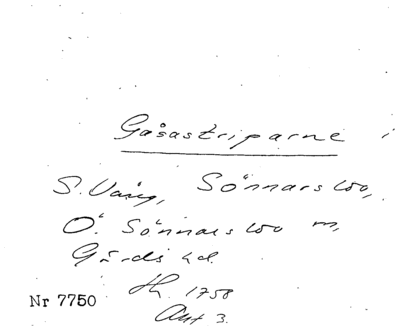 Gåsastriparne
S. Vång, Sönnarslöv,
Ö. Sönnarslöv
Gärds hd.
1758
Akt 3.
Nr 7750